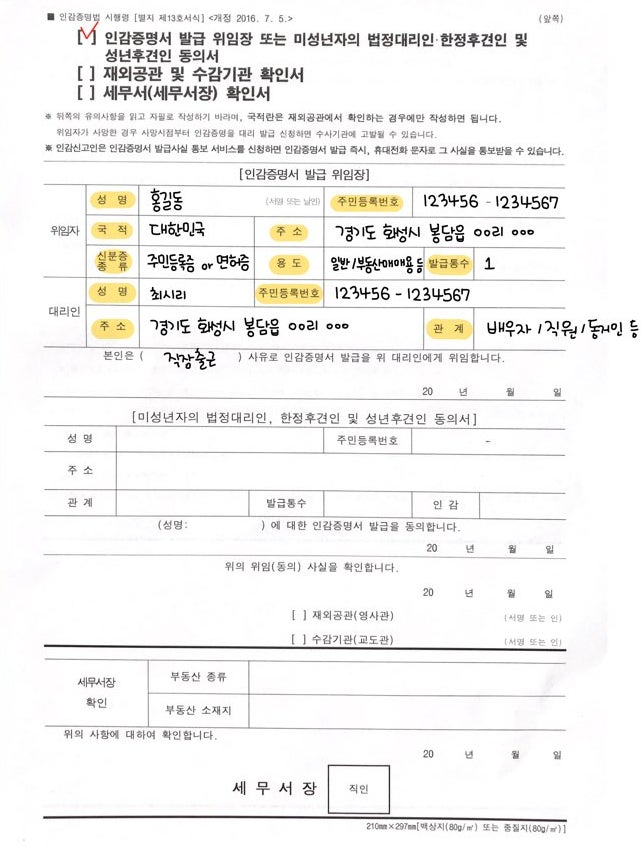 ■ 인감증명법 시행령 [별지 제13호서식] <개정 2016. 7. 5.> (앞쪽)
[ ] 인감증명서 발급 위임장 또는 미성년자의 법정대리인·한정후견인 및
성년후견인 동의서
[ ] 재외공관 및 수감기관 확인서
[ ] 세무서(세무서장) 확인서
※ 뒤쪽의 유의사항을 읽고 자필로 작성하기 바라며, 국적란은 재외공관에서 확인하는 경우에만 작성하면 됩니다.
위임자가 사망한 경우 사망시점부터 인감증명을 대리 발급 신청하면 수사기관에 고발될 수 있습니다.
※ 인감신고인은 인감증명서 발급사실 통보 서비스를 신청하면 인감증명서 발급 즉시, 휴대전화 문자로 그 사실을 통보받을 수 있습니다.
[인감증명서 발급 위임장]
위임자
성 명 홍길동 (서명 또는 날인) 주민등록번호 123456 - 1234567
국 적 대한민국 주 소 경기도 화성시 봉담읍 00리 000
신분증 종류 주민등록증 or 면허증 용 도 일반/부동산매매용 등 발급통수 1
대리인
성 명 최시리 주민등록번호 123456 - 1234567
주 소 경기도 화성시 봉담읍 00리 000 관 계 배우자/직원/동거인 등
본인은 ( 직장출근 ) 사유로 인감증명서 발급을 위 대리인에게 위임합니다.
20 년 월 일
[미성년자의 법정대리인, 한정후견인 및 성년후견인 동의서]
성 명 주민등록번호 -
주 소
관 계 발급통수 인 감
(성명: ) 에 대한 인감증명서 발급을 동의합니다.
20 년 월 일
위의 위임(동의) 사실을 확인합니다.
20 년 월 일
[ ] 재외공관(영사관) (서명 또는 인)
[ ] 수감기관(교도관) (서명 또는 인)
세무서장 확인
부동산 종류
부동산 소재지
위의 사항에 대하여 확인합니다.
20 년 월 일
세 무 서 장 직인
210mm×297mm[백상지(80g/㎡) 또는 중질지(80g/㎡)]